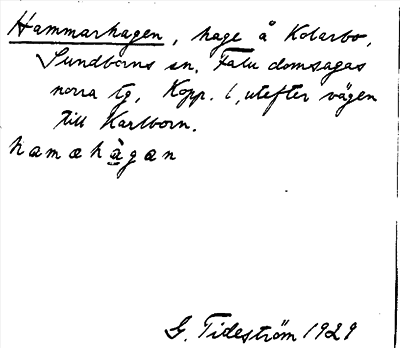 Hammarhagen, hage å Kolarbo,
Sundborns sn. Falu domsagas
norra tg, Kopp. l, utefter vägen
till Karlborn.
hamahàgan
G. Tideström 1929